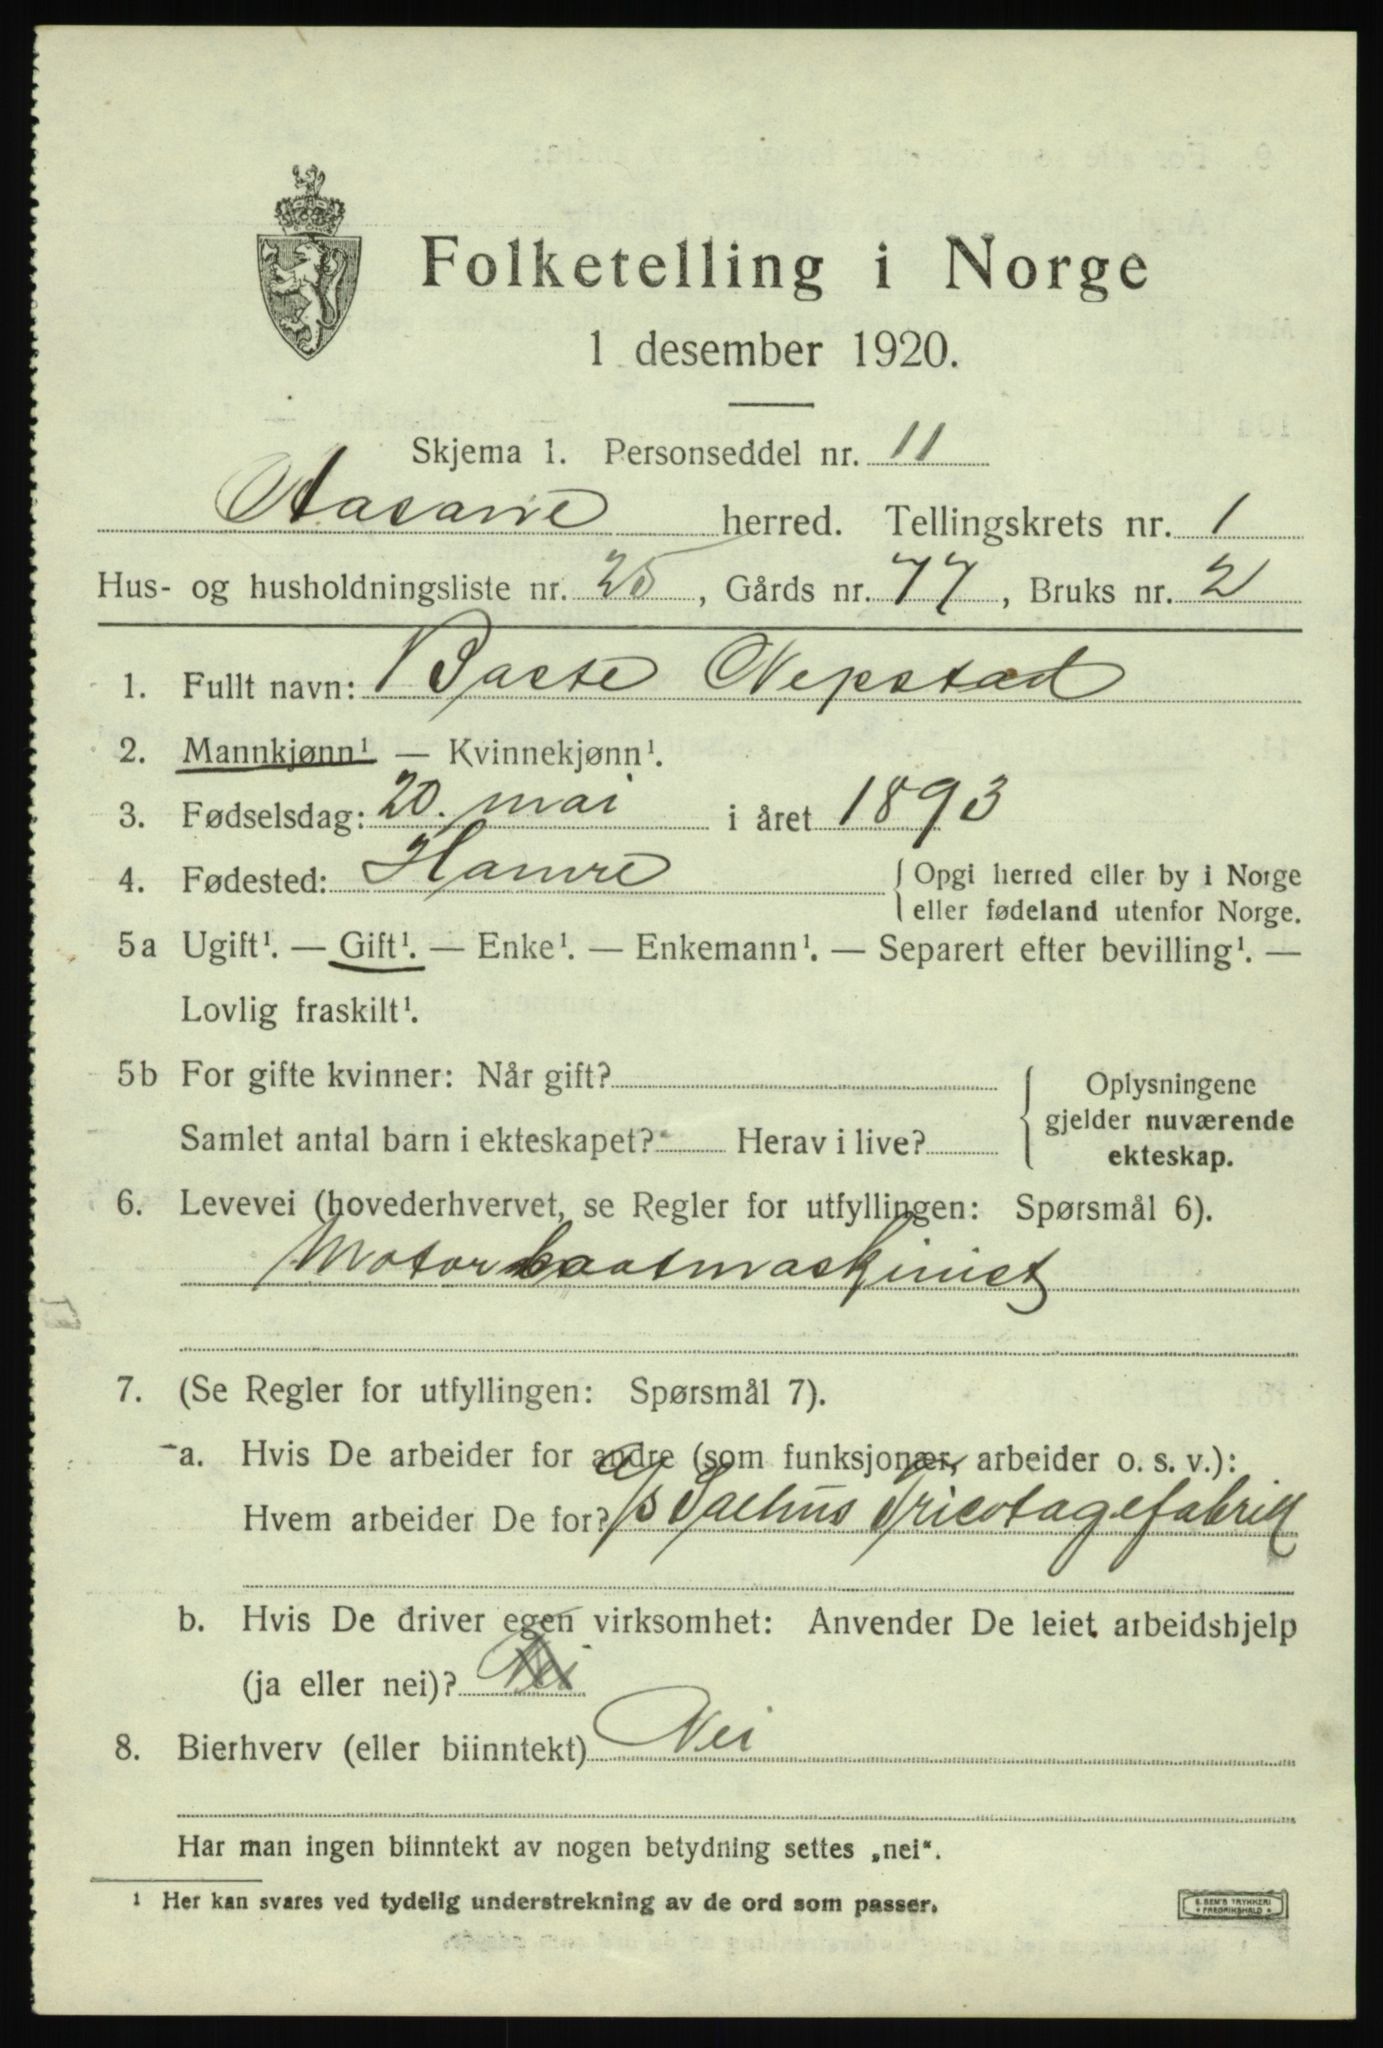 Folketelling i Norge
1 desember 1920.
Skjema 1. Personseddel nr. 11
Aasane herred. Tellingskrets nr. 1
Hus- og husholdningsliste nr. 25, Gårds nr. 77, Bruks nr. 2
1. Fullt navn: Baste Nepstad
2. Mannkjønn¹ — Kvinnekjønn¹.
3. Fødselsdag: 20. mai i året 1893
4. Fødested: Hamre { Opgi herred eller by i Norge
eller fødeland utenfor Norge.
5a Ugift¹. — Gift¹. — Enke¹. — Enkemann¹. — Separert efter bevilling¹. —
Lovlig fraskilt¹.
5b For gifte kvinner: Når gift?
Samlet antal barn i ekteskapet? Herav i live?
{ Oplysningene
gjelder nuværende
ekteskap.
6. Levevei (hovederhvervet, se Regler for utfyllingen: Spørsmål 6).
Motorbaatmaskinist
7. (Se Regler for utfyllingen: Spørsmål 7).
a. Hvis De arbeider for andre (som funksjonær, arbeider o. s. v.):
Hvem arbeider De for? A/S Salhus Tricotagefabrik
b. Hvis De driver egen virksomhet: Anvender De leiet arbeidshjelp
(ja eller nei)? Nei
8. Bierhverv (eller biinntekt) Nei
Har man ingen biinntekt av nogen betydning settes „nei“.
¹ Her kan svares ved tydelig understrekning av de ord som passer.
E. SEM'S TRYKKERI
• FREDRIKSHALD •